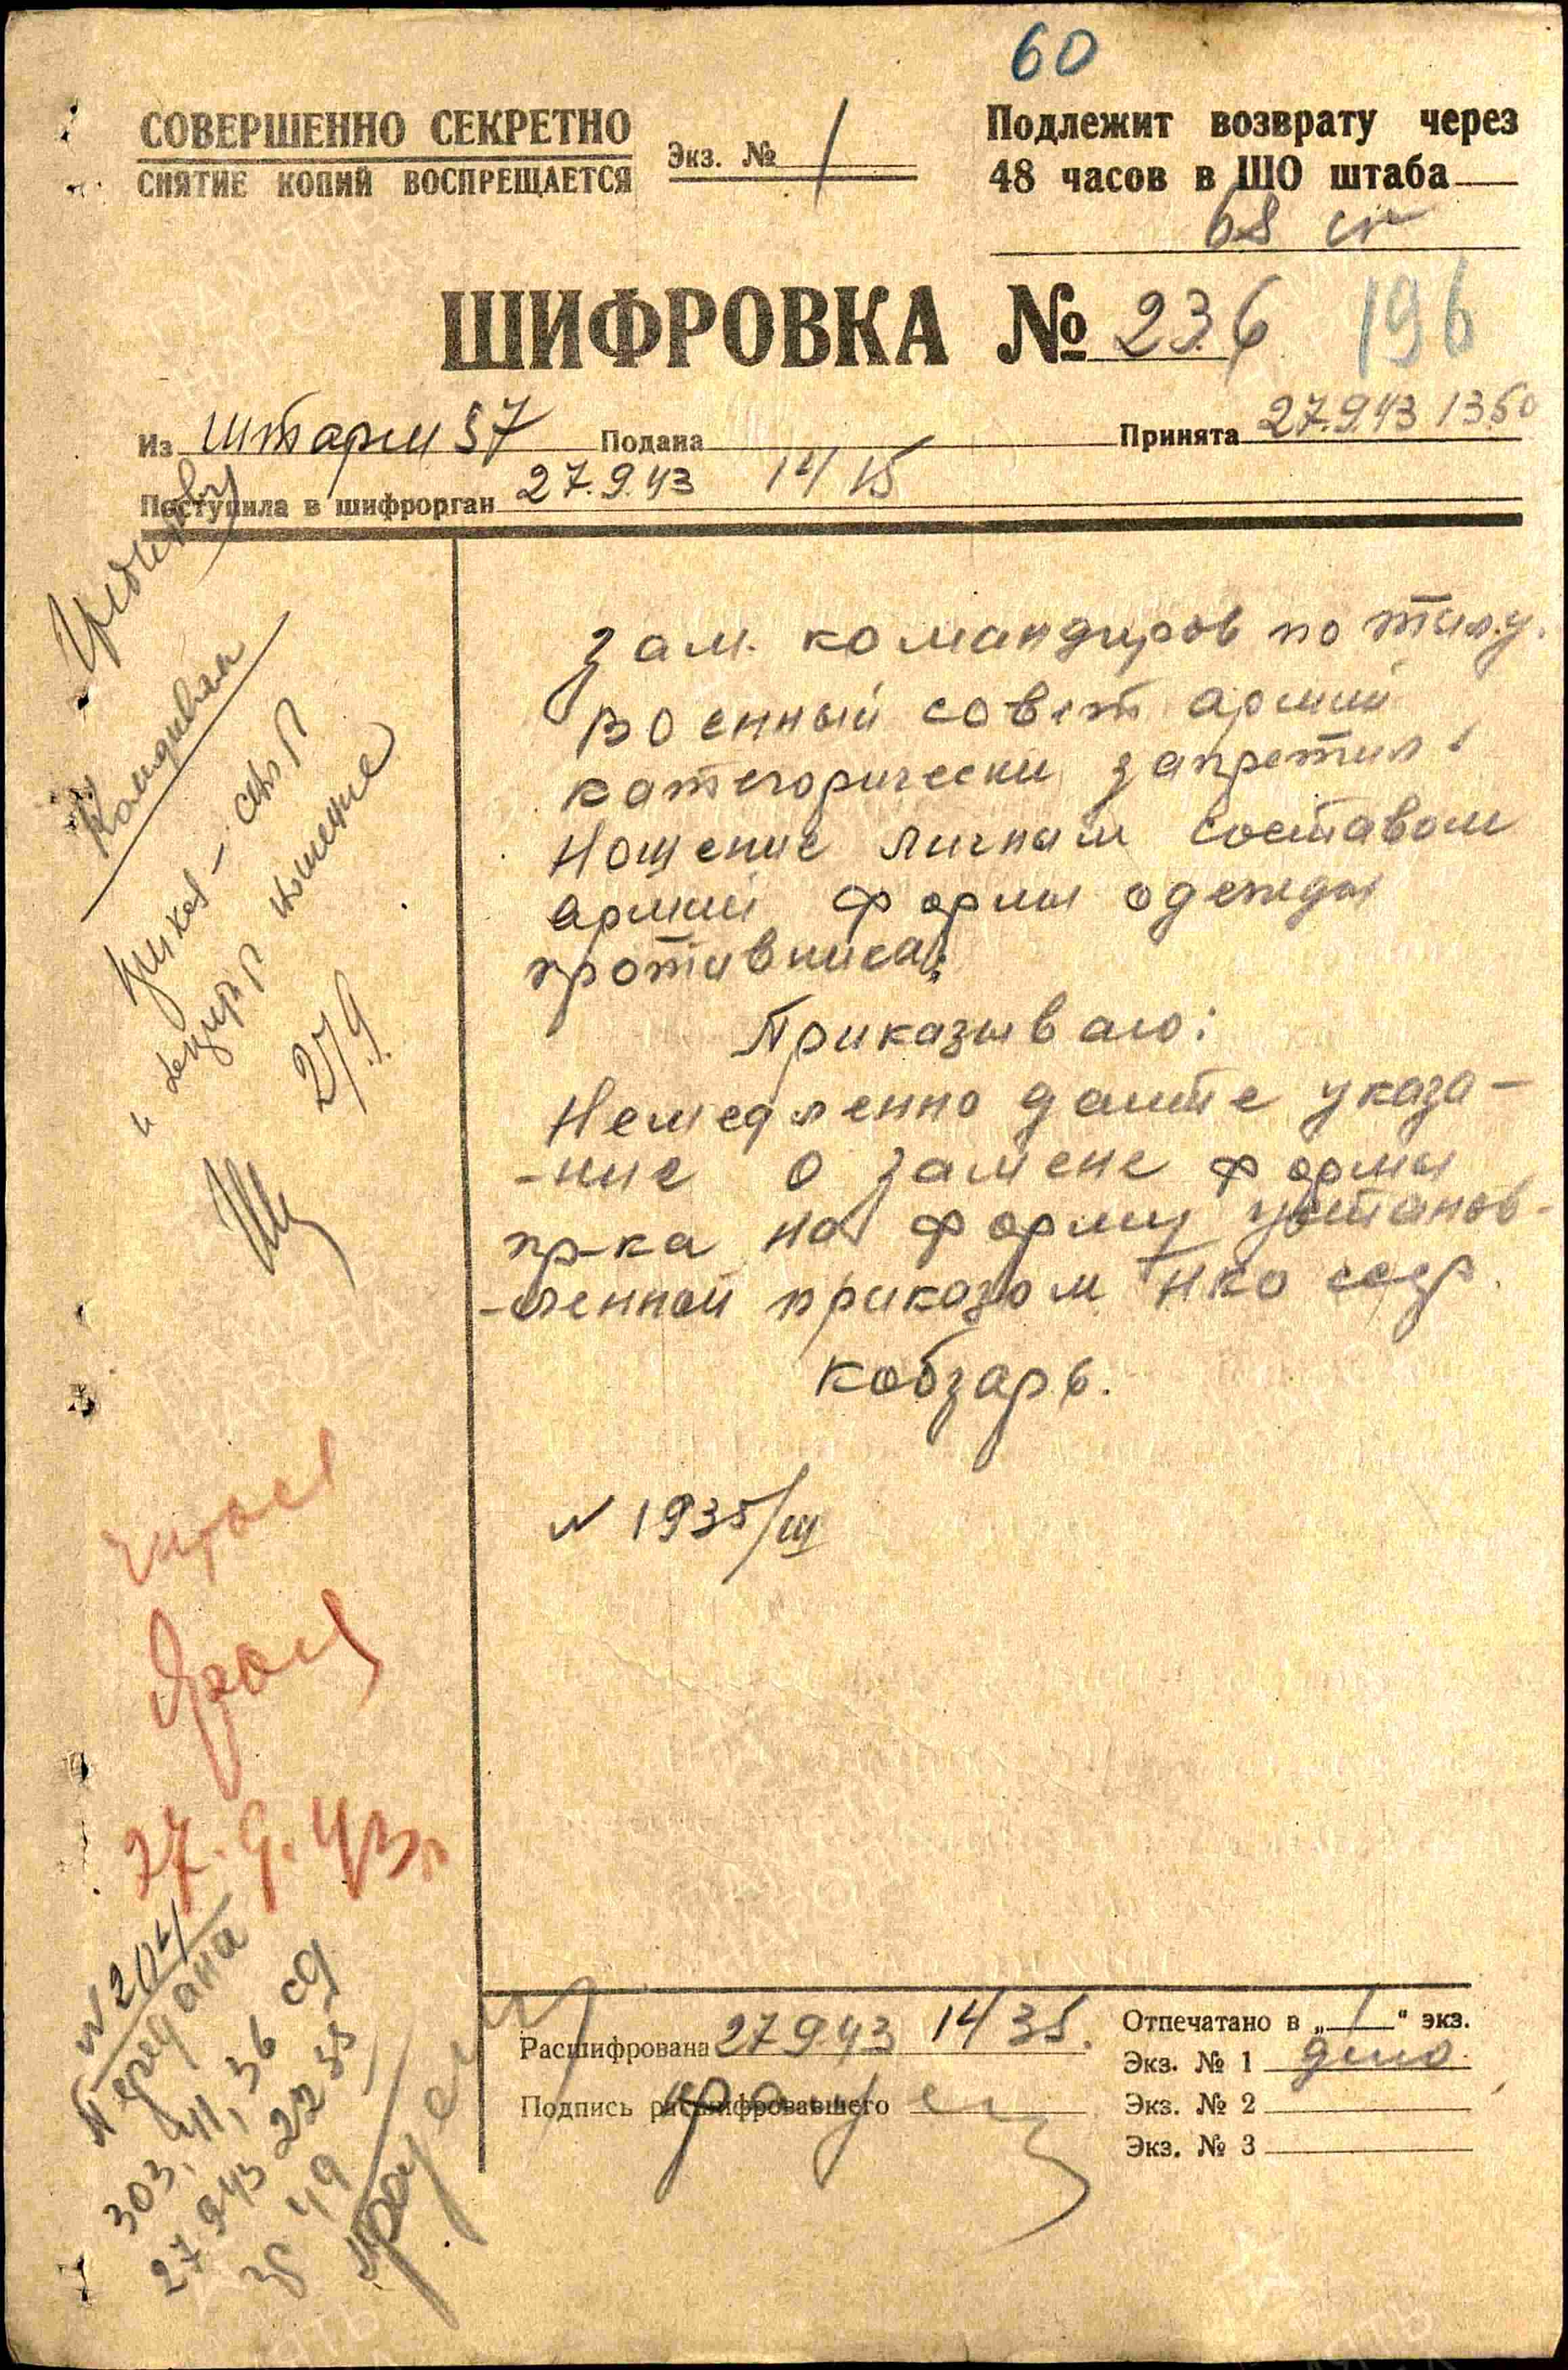 60
СОВЕРШЕННО СЕКРЕТНО
СНЯТИЕ КОПИЙ ВОСПРЕЩАЕТСЯ
Экз. № 1
Подлежит возврату через
48 часов в ШО штаба
68 ск
ШИФРОВКА № 236
196
Из штарм 37 Подана Принята 27.9.43 13.50
Поступила в шифрорган 27.9.43 14 15
Зам. командиров по тылу.
Военный совет армии
категорически запретил
ношение личным составом
армии формы одежды
противника.
Приказываю:
Немедленно дайте указа-
-ние о замене формы
пр-ка на форму установ-
-ленной приказом НКО СССР.
Кобзарь.
N 1935/ш
27/9.
читал
27.9.43г
N 204
Передана
303, 41, 36 сд
27 9 43 22 35
49
Расшифрована 27 9 43 14 35.
Подпись расшифровавшего
Отпечатано в „1“ экз.
Экз. № 1 дело
Экз. № 2
Экз. № 3